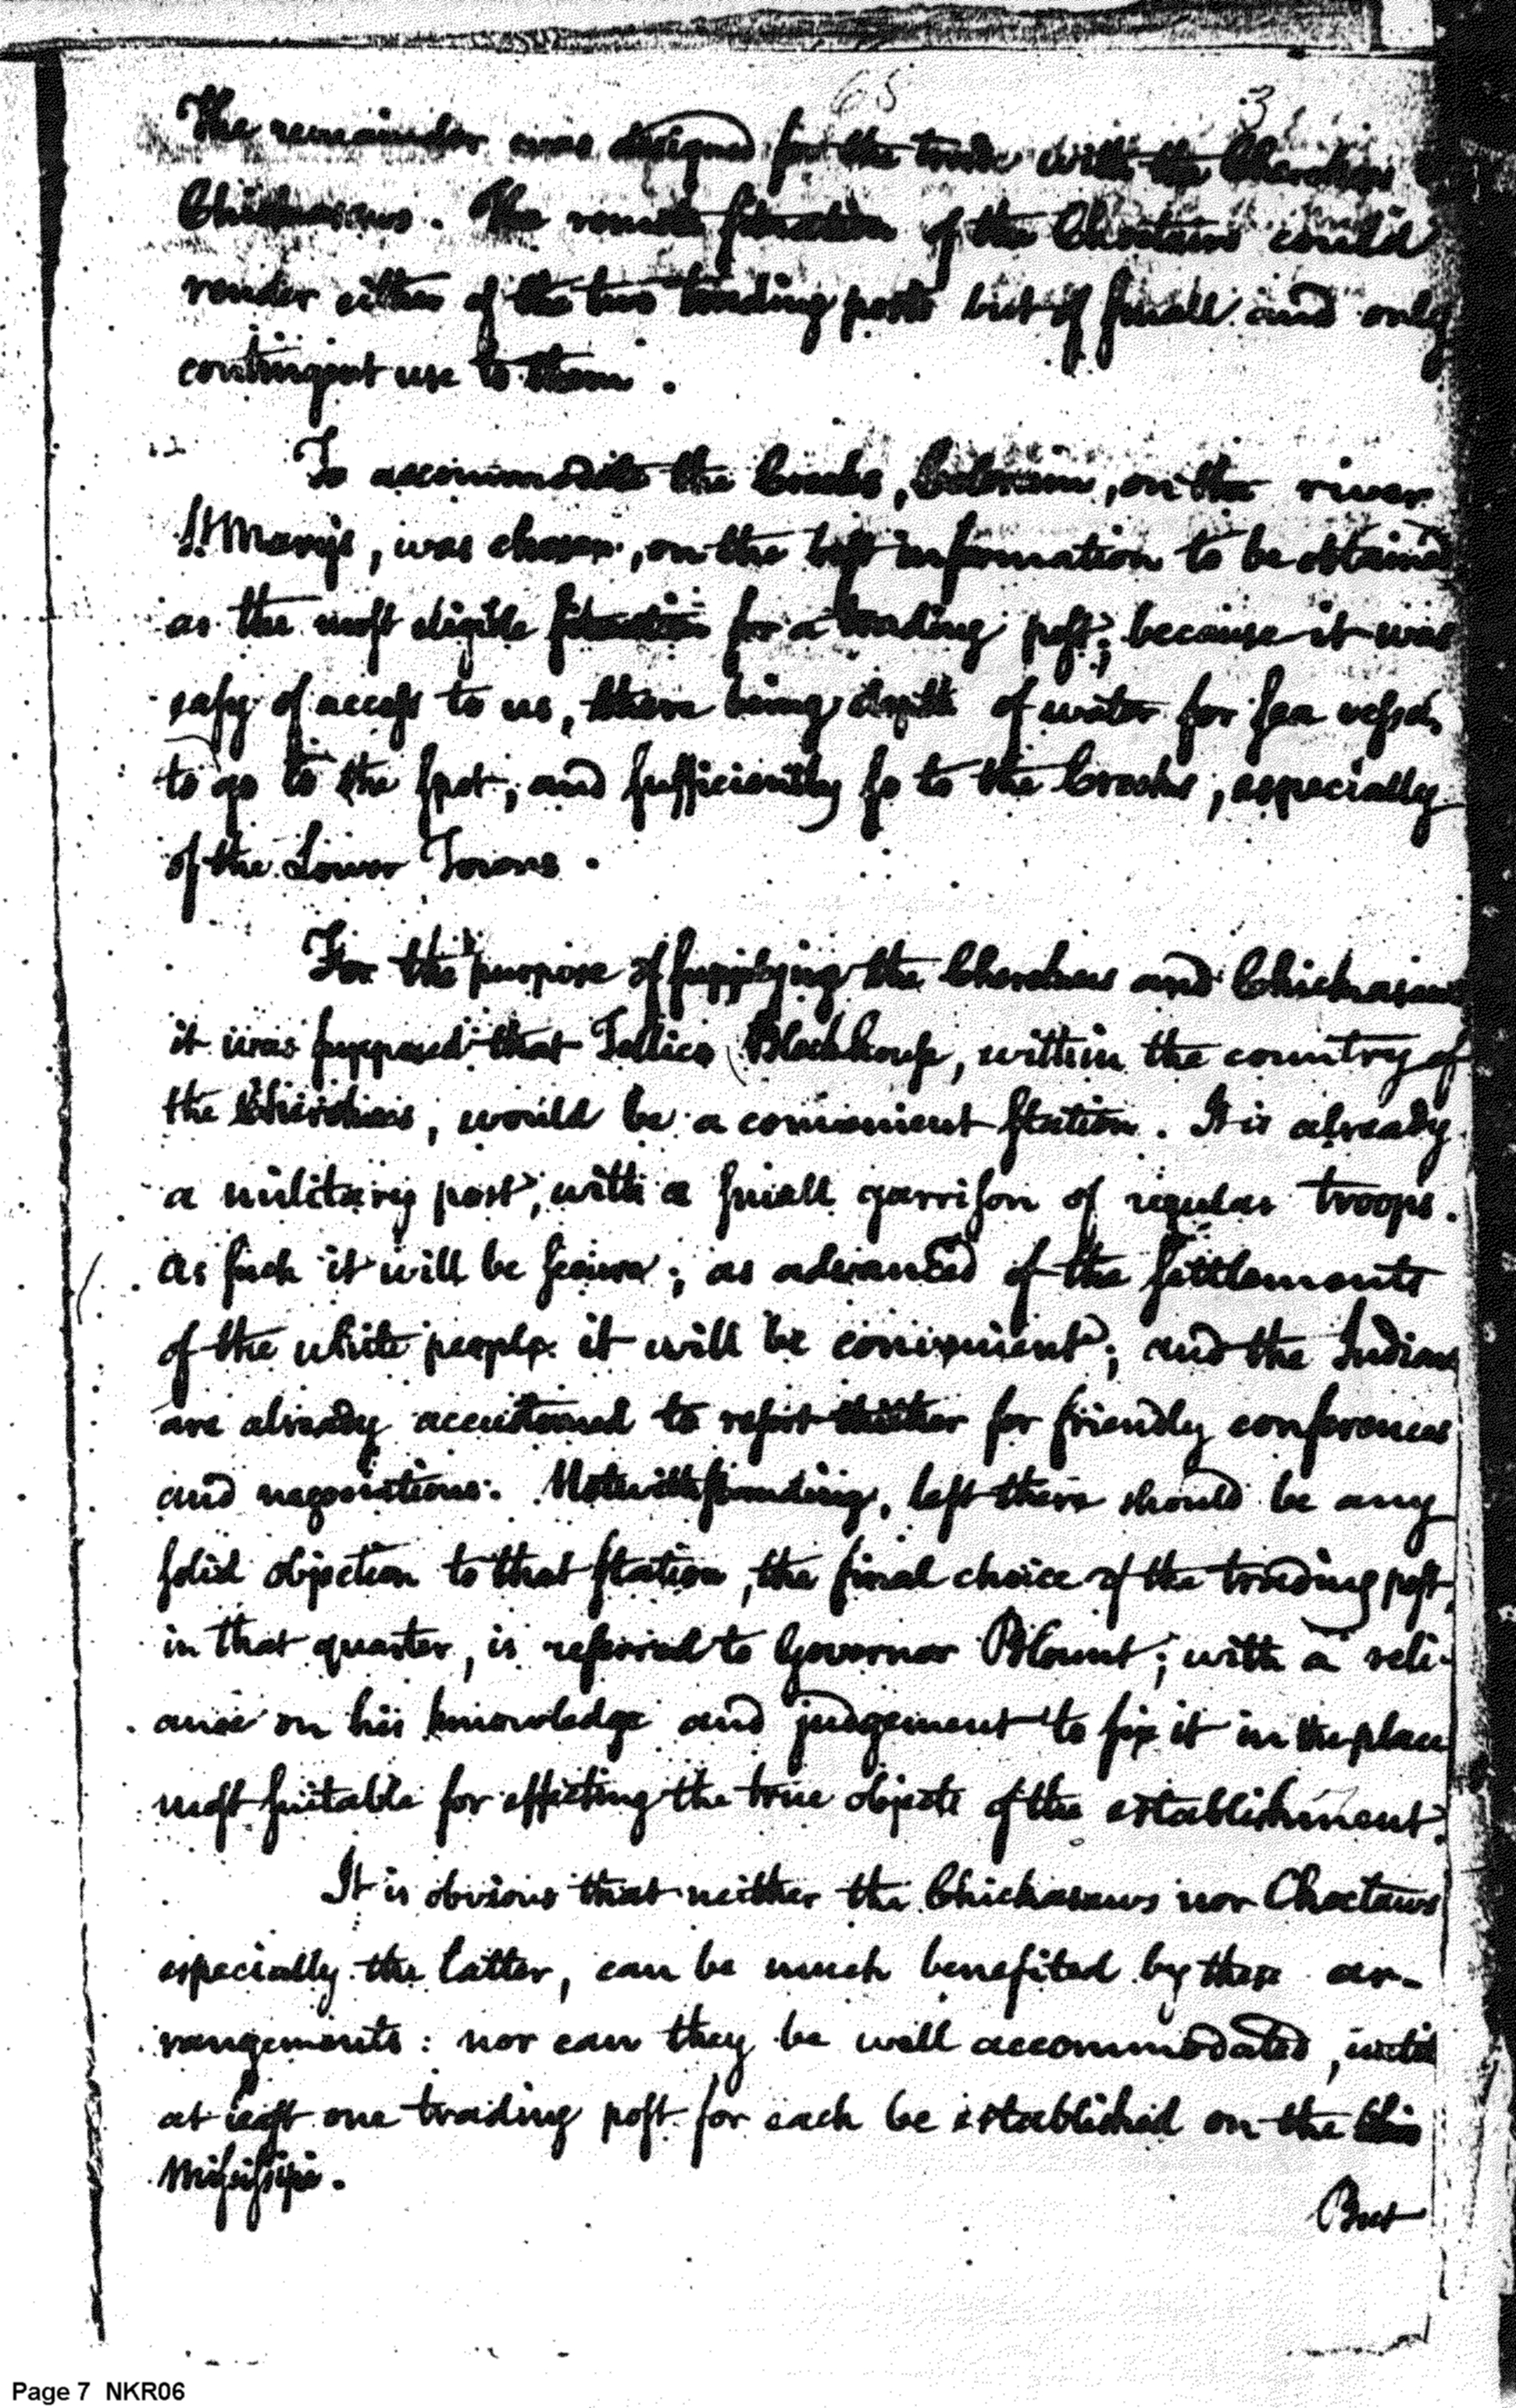 65 3
The remainder was designed for the trade with the Cherokees
Chickasaws. The remote situation of the Choctaws could
render either of the two trading posts but of small and only
contingent use to them.
To accommodate the Creeks, Colerain, on the river
St Mary's, was chosen, on the best information to be obtained
as the most eligible situation for a trading post; because it was
easy of access to us, there being depth of water for sea vessels
to go to the spot; and sufficiently so to the Creeks, especially
of the Lower Towns.
For the purpose of supplying the Cherokees and Chickasaws
it was supposed that Tellico Blockhouse, within the country of
the Cherokees, would be a convenient station. It is already
a military post, with a small garrison of regular troops.
As such it will be secure; as advanced of the settlements
of the white people it will be convenient; and the Indians
are already accustomed to resort thither for friendly conferences
and negociations. Notwithstanding, lest there should be any
solid objection to that station, the final choice of the trading post,
in that quarter, is referred to Governor Blount; with a reli-
ance on his knowledge and judgement to fix it in the place
most suitable for effecting the true objects of the establishment.
It is obvious that neither the Chickasaws nor Choctaws
especially the latter, can be much benefited by these ar-
rangements: nor can they be well accommodated, until
at least one trading post for each be established on the
Missisippi.
But
Page 7 NKR06